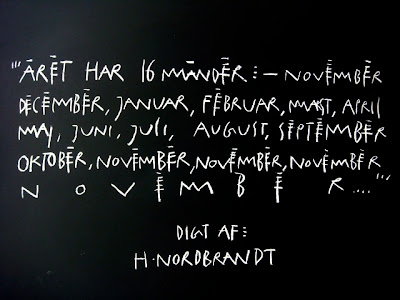 "ÅRET HAR 16 MÅNDER: — NOVEMBER
DECEMBER, JANUAR, FEBRUAR, MARST, APRIL
MAJ, JUNI, JULI, AUGUST, SEPTEMBER
OKTOBER, NOVEMBER, NOVEMBER, NOVEMBER
NOVEMBER...."
DIGT AF:
H·NORDBRANDT